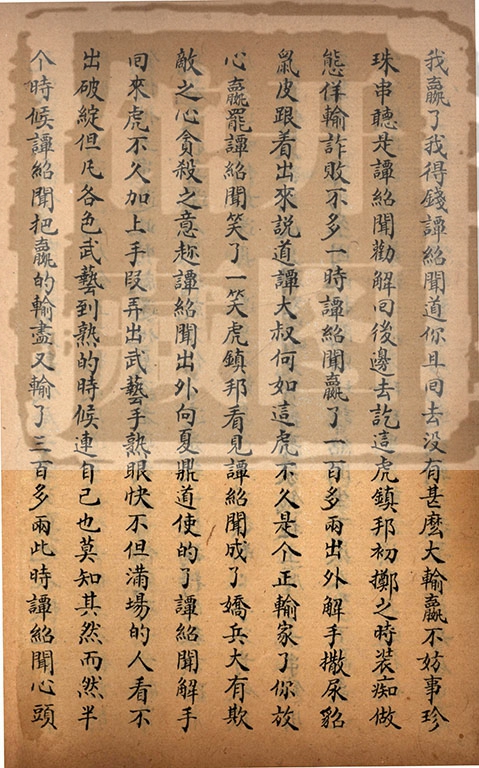 我贏了我得錢譚紹聞道你且回去没有甚麽大輸贏不妨事珍
珠串聽是譚紹聞勸解回後邊去訖這虎鎮邦初擲之時装痴做
態佯輸詐敗不多一時譚紹聞贏了一百多兩出外解手撒尿貂
鼠皮跟着出來説道譚大叔何如這虎不久是个正輸家了你放
心贏罷譚紹聞笑了一笑虎鎮邦看見譚紹聞成了嬌兵大有欺
敵之心貪殺之意趂譚紹聞出外向夏鼎道使的了譚紹聞解手
回來虎不久加上手段弄出武藝手熟眼快不但滿場的人看不
出破綻但凡各色武藝到熟的時候連自己也莫知其然而然半
个時候譚紹聞把贏的輸盡又輸了三百多兩此時譚紹聞心頭